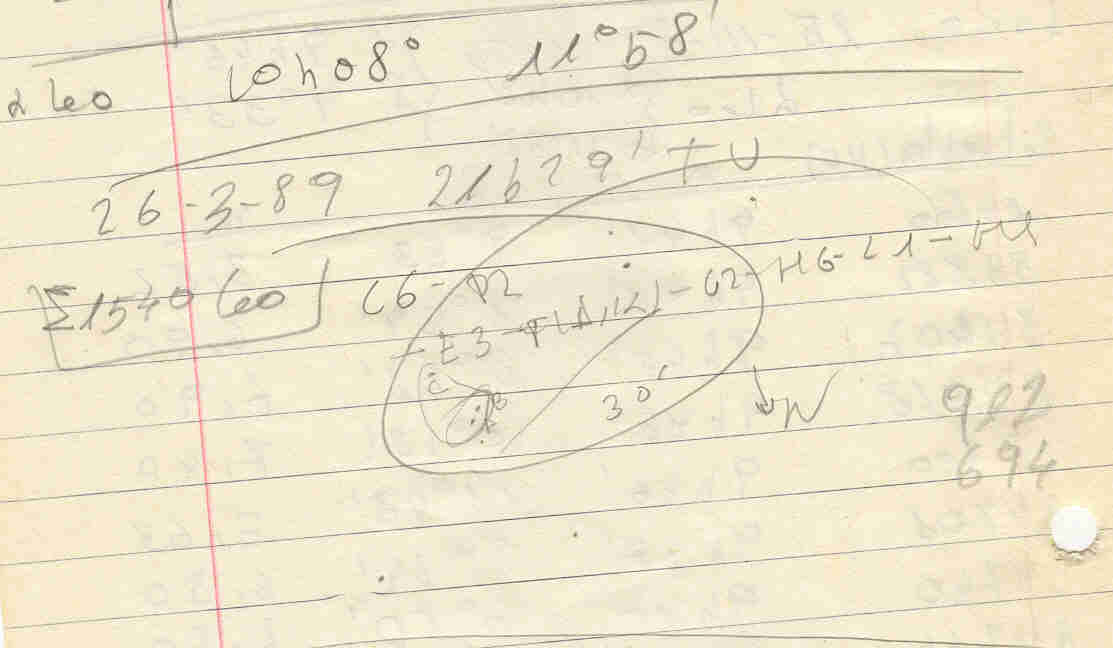 α Leo 10h08° 11°58'
26-3-89 21h29' TU
Σ1540 Leo C6-D2
-E3-F(A,K)-G2-H6-L1-
C B
30' ↓N
982
694